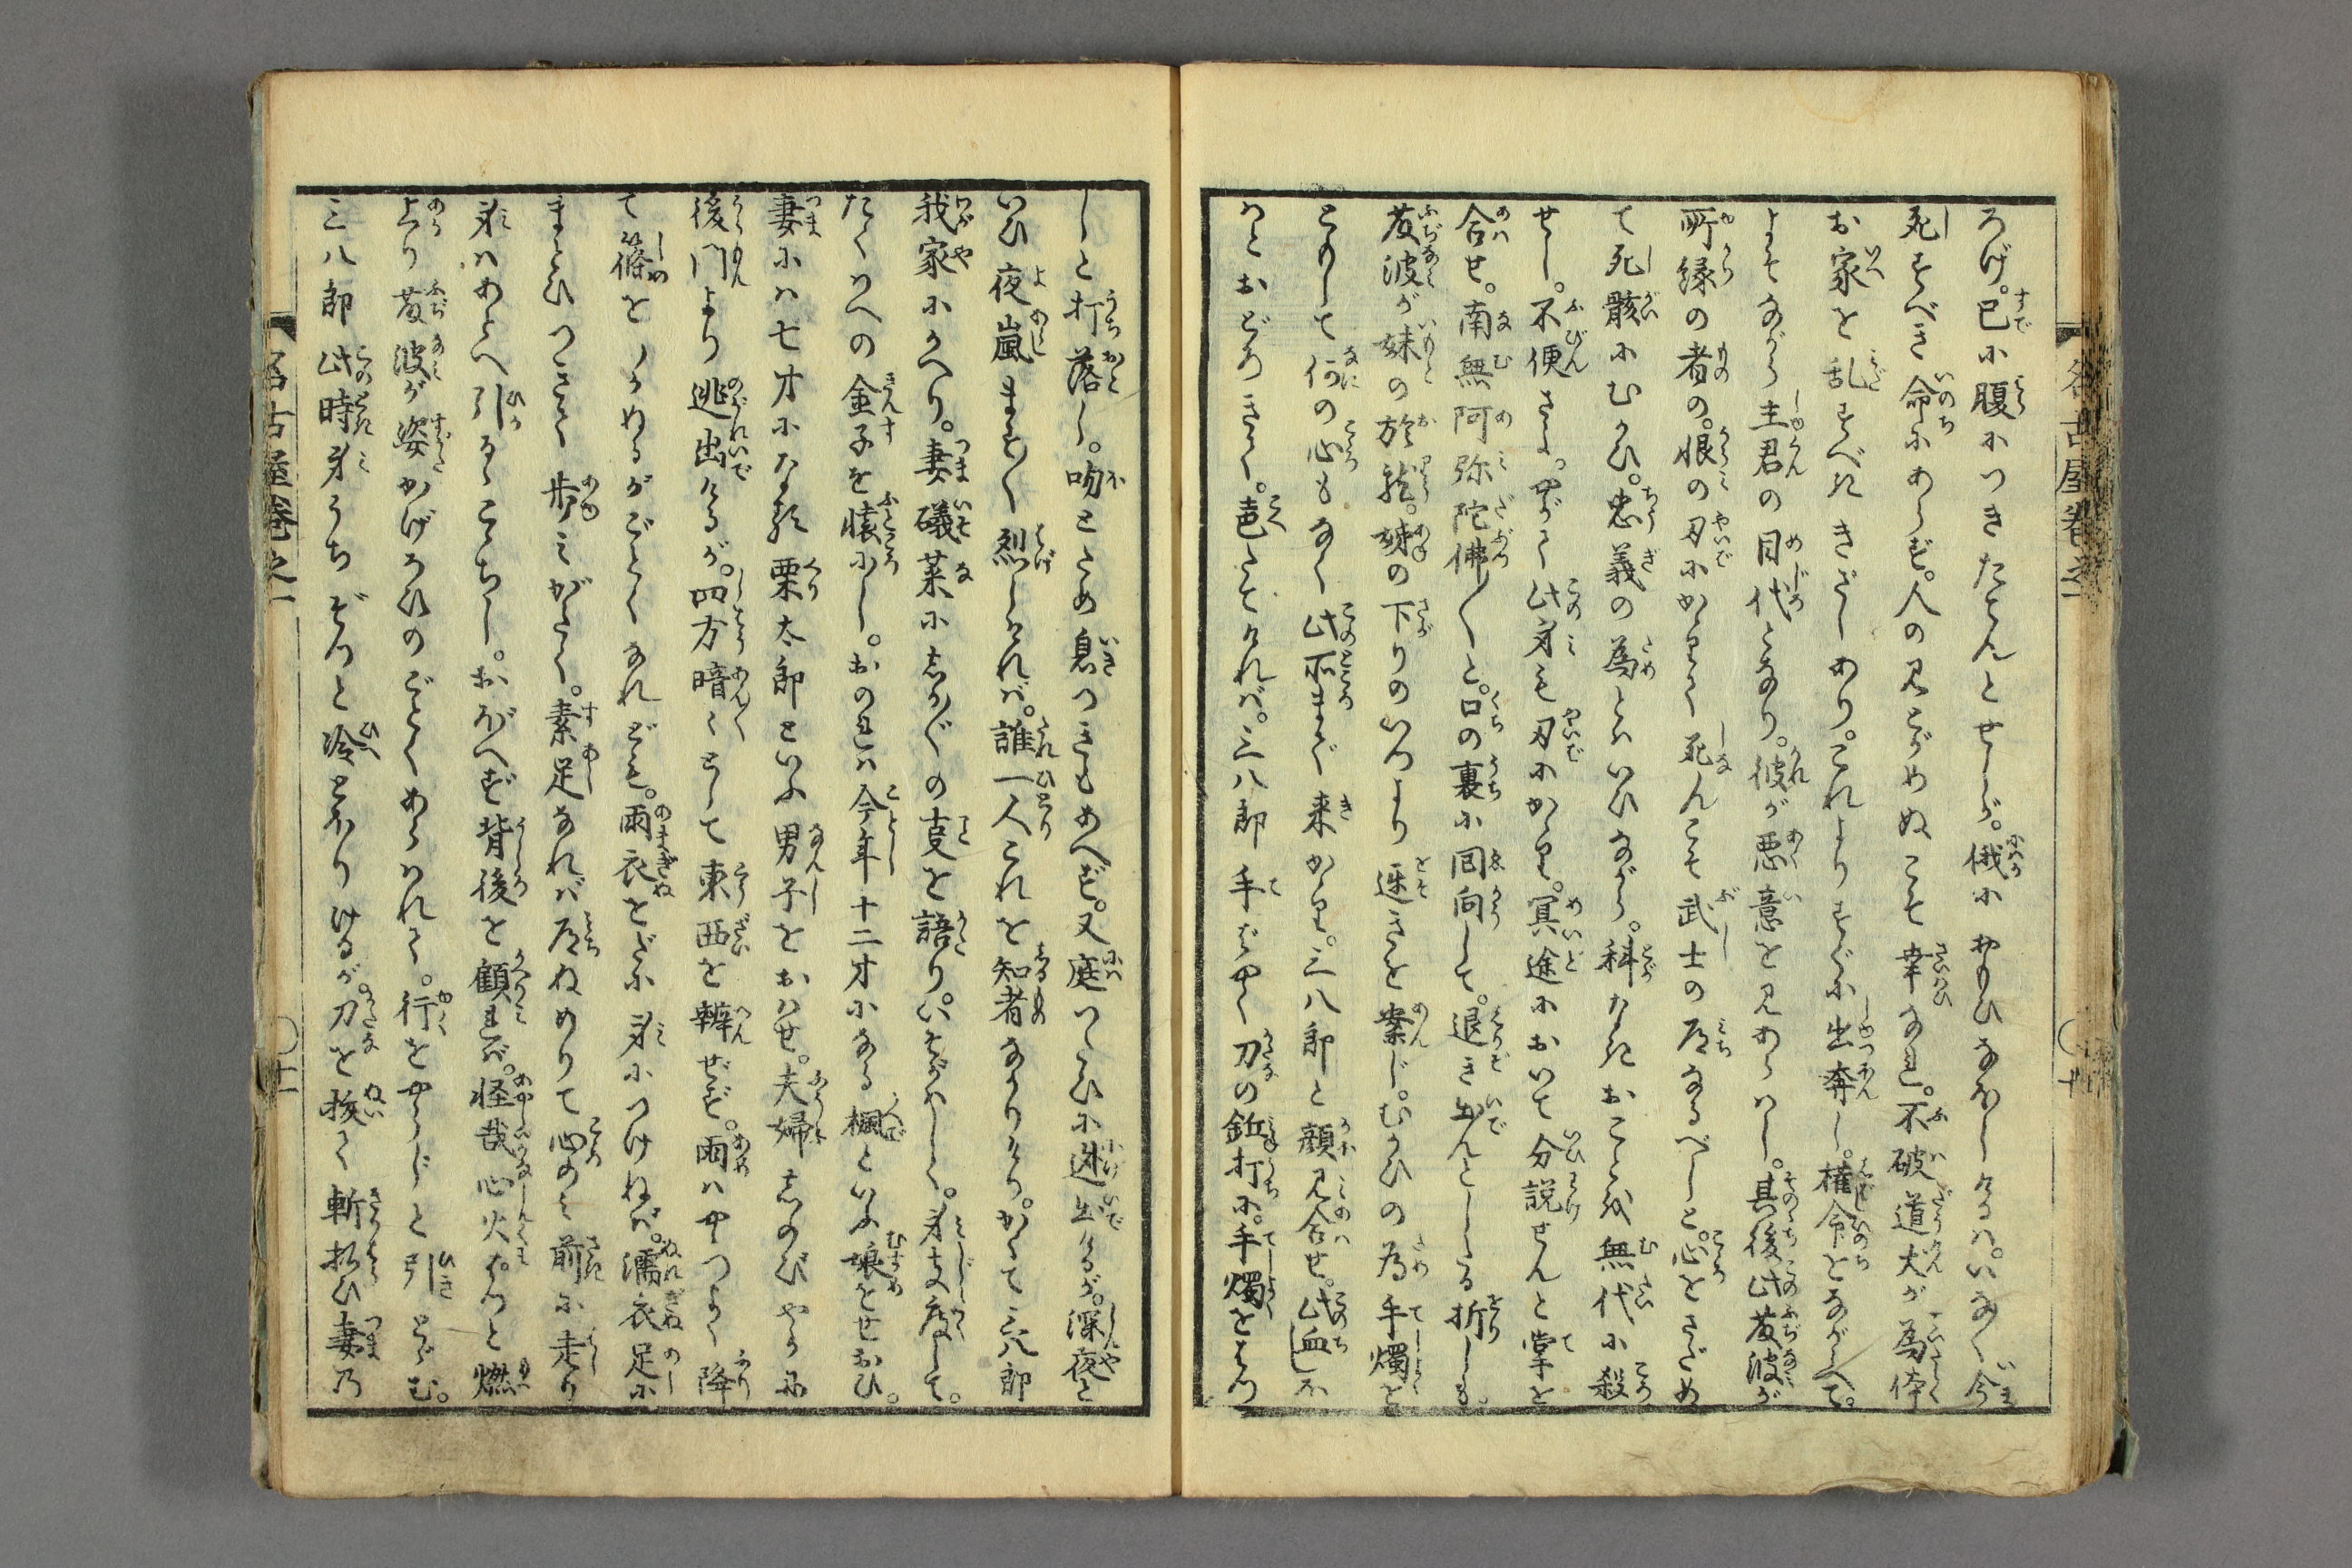 ろげ。已に腹につきたてんとせしが。俄におもひなほしけるは。いな〱今
死すべき命にあらず。人の見とがめぬこそ幸なれ。不破道犬が為体
お家を乱すべききざしあり。これよりすぐに出奔し。権命をながらへて。
よそながら主君の目代となり。彼が悪意を見あらはし。其後此藤波が
所縁の者の。恨の刃にかゝりて死んこそ武士の道なるべしと。心をさだめ
て死骸にむかひ。忠義の為とはいひながら。科なきおことを無代に殺
せし。不便さよ。やがて此身も刃にかゝり。冥途において分説せんと掌を
合せ。南無阿弥陀佛〱と。口の裏に回向して。退き出んとしたる折しも。
藤波が妹の於龍。姉の下りのいつより遅きを案じ。むかひの為手燭を
ともして何の心もなく此所まで来かゝり。三八郎と顔見合せ。此血しほ
はとおどろきて。声たてければ。三八郎手ばやく刀の鉈打に。手燭をはつ
名古屋巻之一 〇十
しと打落し。吻とため息つきもあへず。又庭づたひに迯出けるが。深夜と
いひ夜嵐ます〱烈しければ。誰一人これを知者なかりけり。かくて三八郎
我家にかへり。妻礒菜にしか〲の㕝を語り。いそがはしく。身支度して。
たくはへの金子を懐にし。おのれは今年十二才になる楓といふ娘をせおひ。
妻には七才になる栗太郎といふ男子をおはせ。夫婦しのびやかに
後門より逃出けるが。四方暗〱として東西を辨ぜず。雨はやつよく降
て篠をつかぬるがごとくなれども。雨衣をだに身につけねば。濡衣足に
まとひつきて歩みがたく。素足なれば道ねめりて心のみ前に走り
身はあとへ引るゝこゝちし。おぼへず背後を顧れば。怪哉心火ぱつと燃
上り藤波が姿かげろひのごとくあらはれて。行をやらじと引とゞむ。
三八郎此時身うちぞつと冷とほりけるが。刀を抜て斬払ひ妻の
名古屋巻之一 〇十一